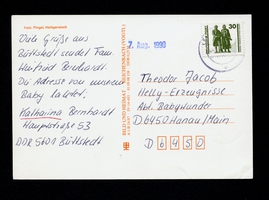 Foto: Pirgel, Heiligenstadt
Viele Grüße aus
Büttstedt sendet Fam.
Winfried Bernhardt.
Die Adresse von unserem
Baby lautet:
Katharina Bernhardt
Hauptstraße 53
DDR 5601 Büttstedt
BILD UND HEIMAT REICHENBACH (VOGTL)
7. Aug. 1990
30
Theodor Jacob
Helly-Erzeugnisse
Abt. Babywunder
D 6450 Hanau/Main
D 6 4 5 0